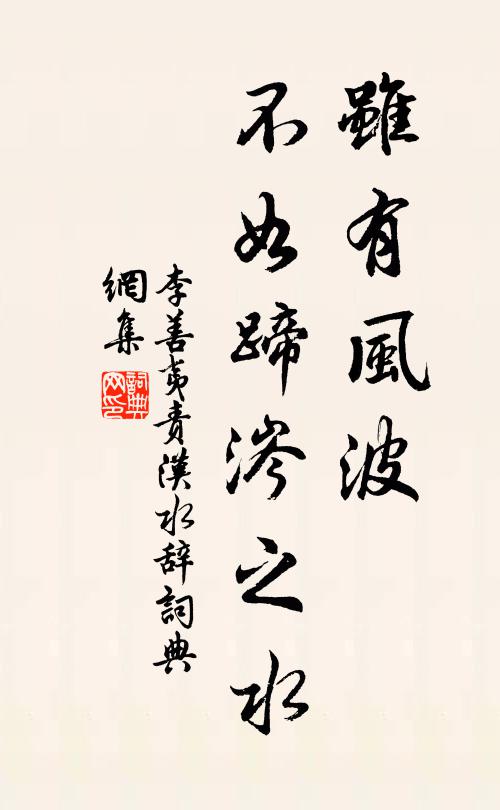 雖有風波
不如蹄涔之水
李善夷責漢水辞詞典
網集
詞典
网印